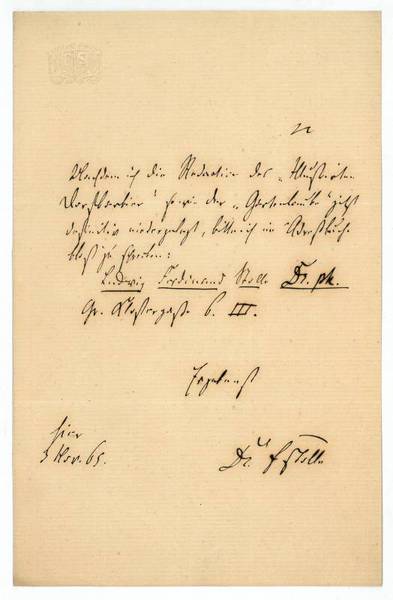 Nachdem ich die Redaction des „Illustrirten
Dorfbarbier" sowie der „Gartenlaube" jetzt
definitiv niedergelegt, bitte ich im Adreßbuche
bloß zu setzen:
Ludwig Ferdinand Stolle Dr. ph.
Gr. Klostergasse 6. III.
Ergebenst
Dr. F Stolle
hier
3 Nov. 65.